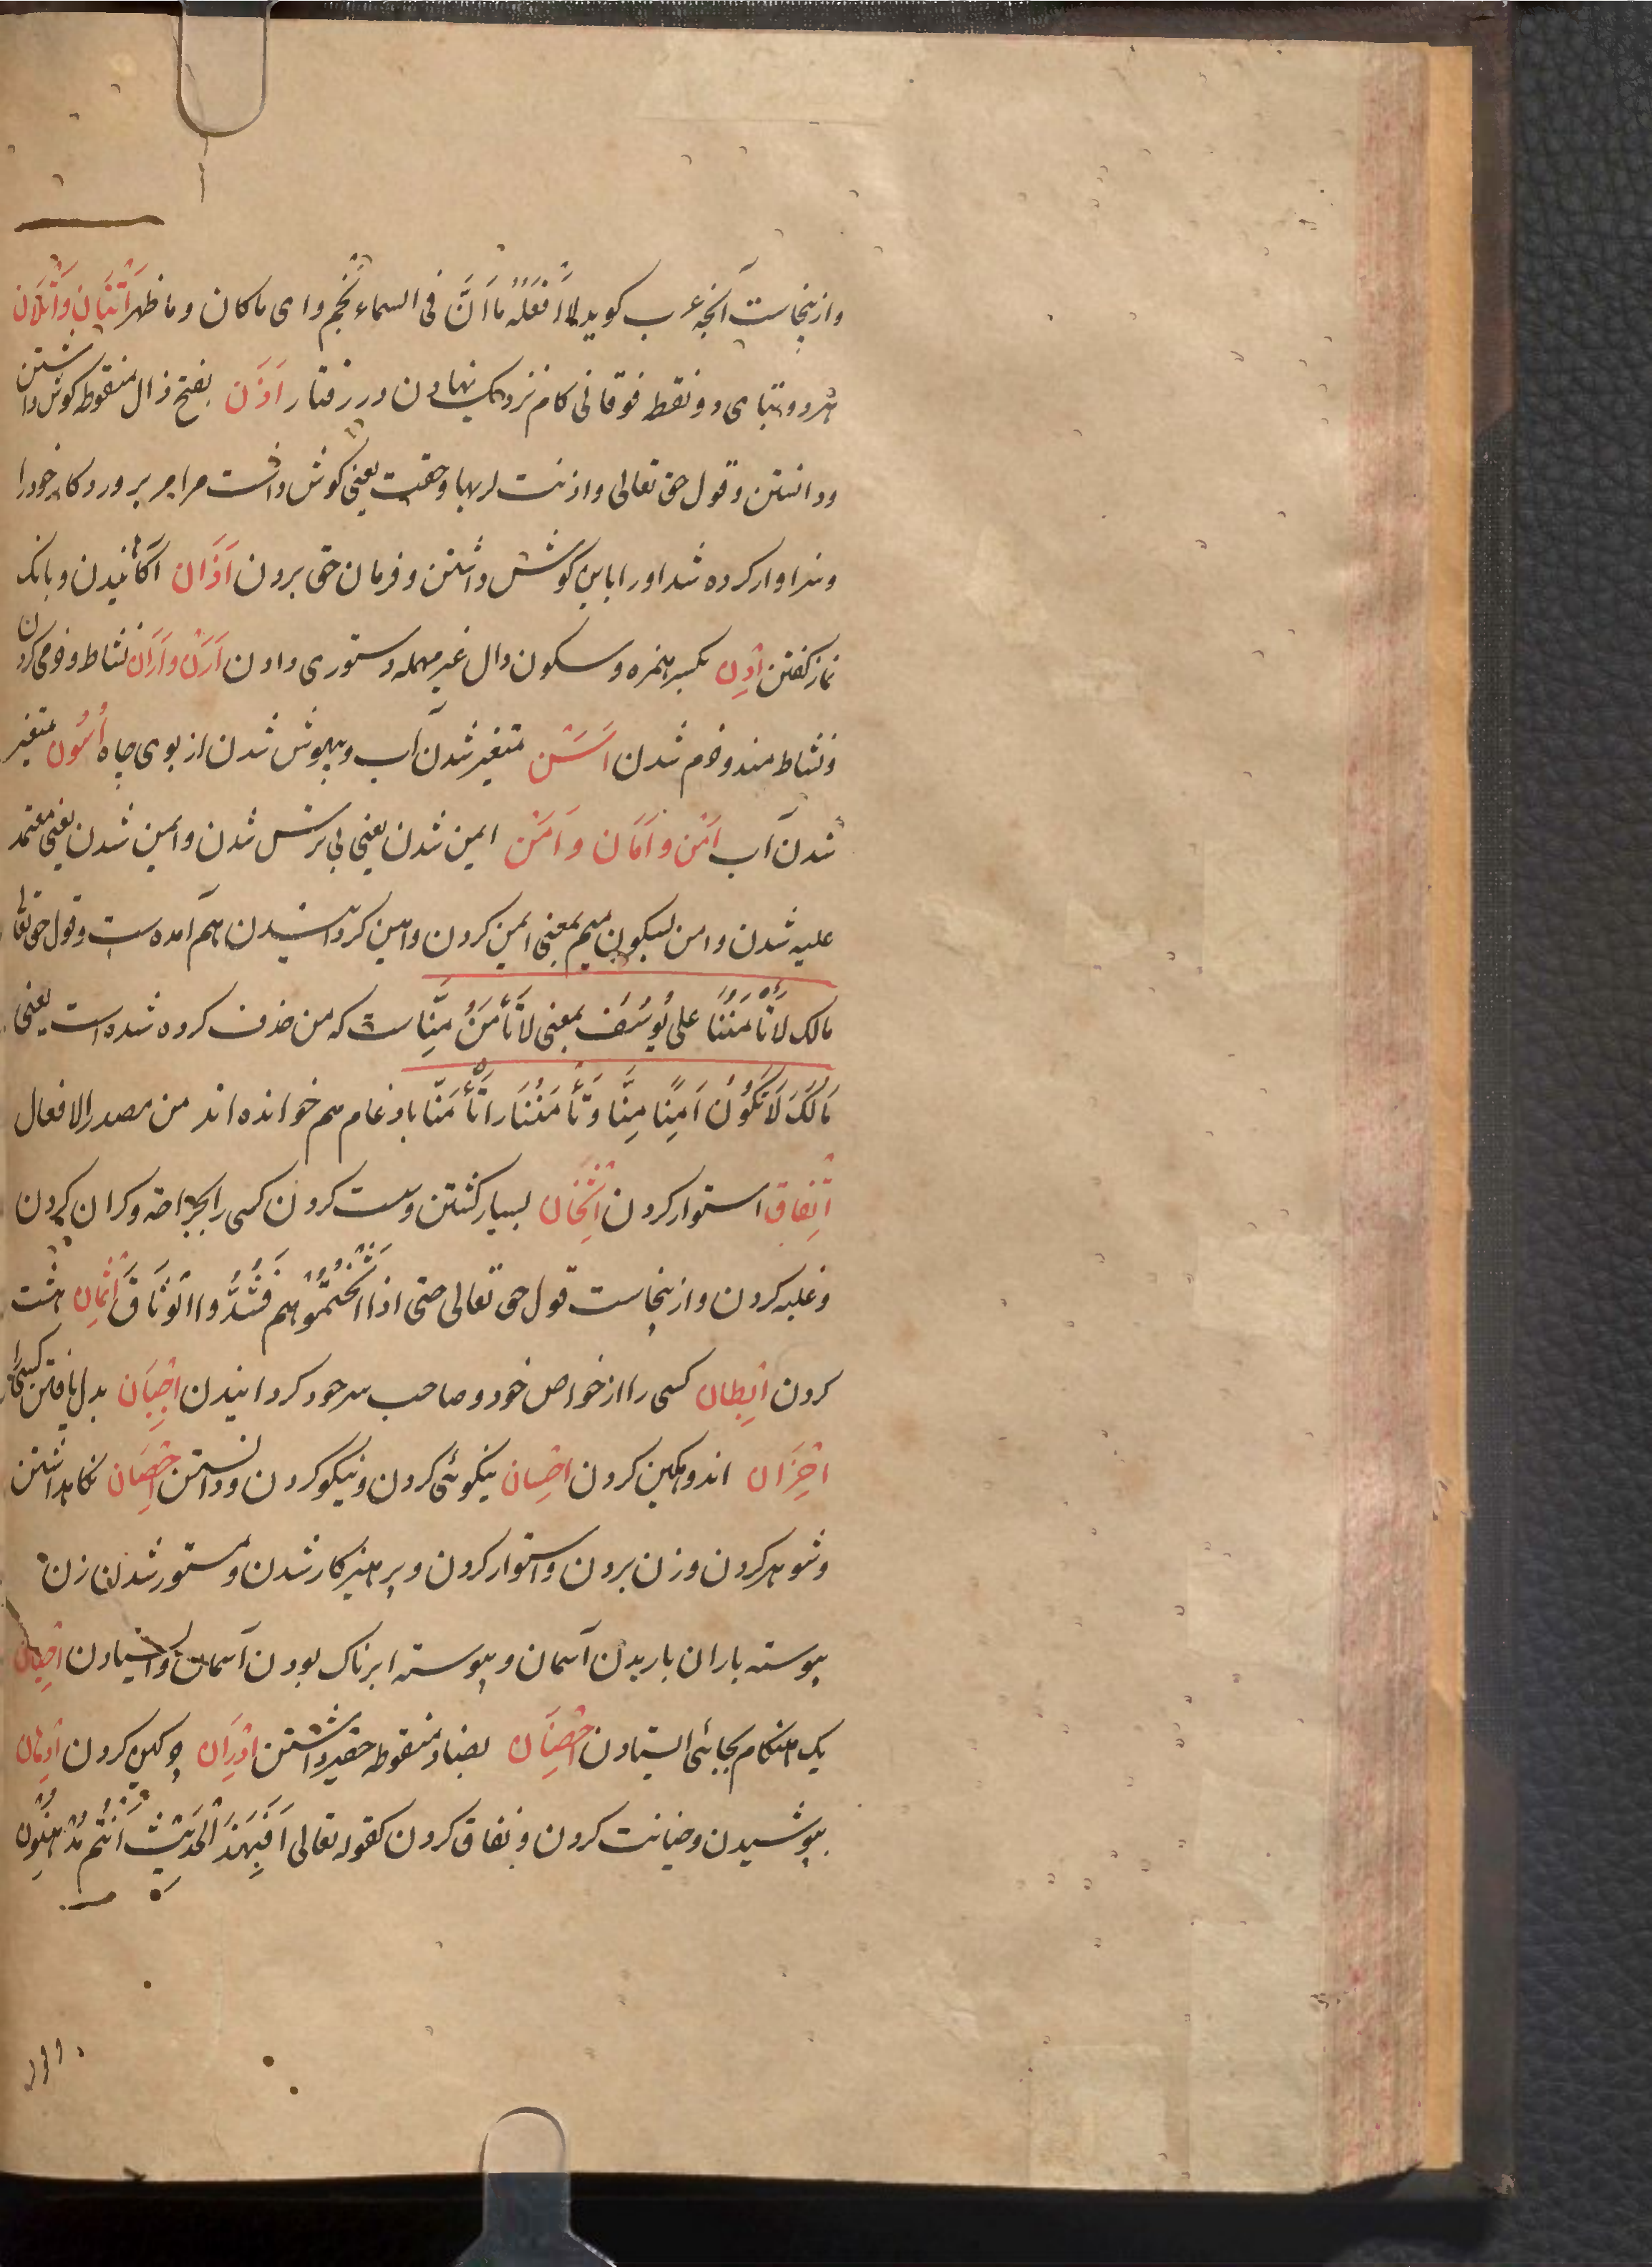 وازینجاست آنچه عرب کوید لا اَفْعَلُهُ مَا اَنَّ فی السماء نَجْم و ای ماکان و ما ظهر اَتَنَان وَ اَتَلَان
هر دو بتای دو نقطه فوقانی کام نزدیک نهادن در رفتار اَذَن بفتح ذال منقوطه کوش داشتن
و دانستن و قول حق تعالی و اذنت لربها و حقت یعنی کوش داشت مر امر پروردکار خود را
و سزاوار کرده شد او را باین کوش داشتن و فرمان حق بردن اَذَان آکاهانیدن و بانک
نماز کفتن اِذْن بکسر همزه و سکون دال غیر مهمله دستوری دادن اَرَن و اَرَان نشاط و خرمی کردن
و نشاط مند و خرم شدن اَسَن متغیر شدن آب و بیهوش شدن از بوی چاه اُسُون متغیر
شدن آب اَمْن و اَمَان و اَمَن ایمن شدن یعنی بی ترس شدن و امین شدن یعنی معتمد
علیه شدن و امن بسکون میم بمعنی ایمن کردن و امین کردانیدن هم آمده ست و قول حق تعالی
مالک لَا تَأْمَنُنَا علی یُوسُفَ بمعنی لَا تَأْمَنُ مِنَّا ست که من حذف کرده شده است یعنی
مَالَکَ لَا تَکُوْنُ اَمِیْنًا مِنَّا و تَأْمَنُنَا را تَأْمَنَّا بادغام هم خوانده اند من مصدر الافعال
اِتْقَاق استوار کردن اِثْخَان بسیار کشتن و سست کردن کسی را بجراحة و کران کردن
و غلبه کردن و ازینجاست قول حق تعالی حتی اذا اَثْخَنْتُمُوْهُمْ فَشُدُّوا الْوَثَاقَ اِثْمَان هشت
کردن اِبْطَان کسی را از خواص خود و صاحب سر خود کردانیدن اِجْبَان بد دل یافتن کسی را
اِحْزَان اندوهکین کردن اِحْسَان نیکوئی کردن و نیکو کردن و دانستن اِحْصَان نکاه داشتن
و شوهر کردن و زن بردن و استوار کردن و پرهیزکار شدن و مستور شدن زن
پیوسته باران باریدن آسمان و پیوسته ابرناک بودن آسمان و ایستادن
یک هنکام بجائی ایستادن اِحْضَان بضاد منقوطه حقیر داشتن اِدْرَان چرکین کردن اِدْهَان
پوشیدن و خیانت کردن و نفاق کردن کقوله تعالی اَفَبِهٰذَ الْحَدِیْثِ اَنْتُمْ مُدْهِنُونَ